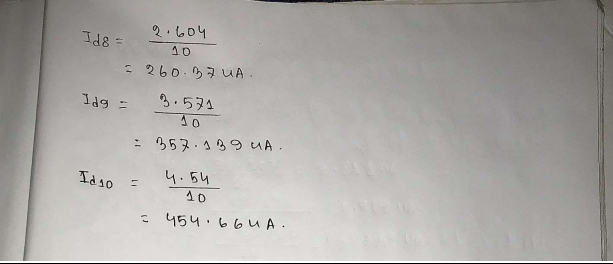 Id8 = 2.604 / 10
= 260.37 uA.
Id9 = 3.571 / 10
= 357.139 uA.
Id10 = 4.54 / 10
= 454.66 uA.